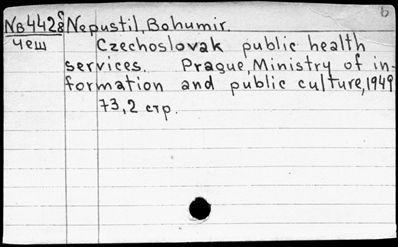 Nв4428 Nepustil, Bohumir.
чеш Czechoslovak public health
services. Prague, Ministry of in-
formation and public culture, 1949
73, 2 стр.